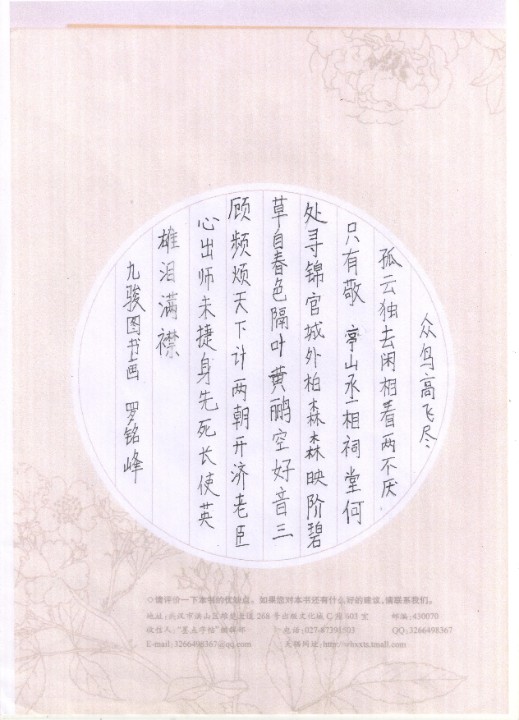 众鸟高飞尽
孤云独去闲相看两不厌
只有敬亭山丞相祠堂何
处寻锦官城外柏森森映阶碧
草自春色隔叶黄鹂空好音三
顾频烦天下计两朝开济老臣
心出师未捷身先死长使英
雄泪满襟
九骏图书画 罗铭峰
◇请评价一下本书的优缺点，如果您对本书还有什么好的建议，请联系我们。
地址：武汉市洪山区雄楚大道268号出版文化城C座603室 邮编：430070
收信人：“墨点字帖”编辑部 电话：027-87391503 QQ：3266498367
E-mail：3266498367@qq.com 天猫网址：http://whxxts.tmall.com